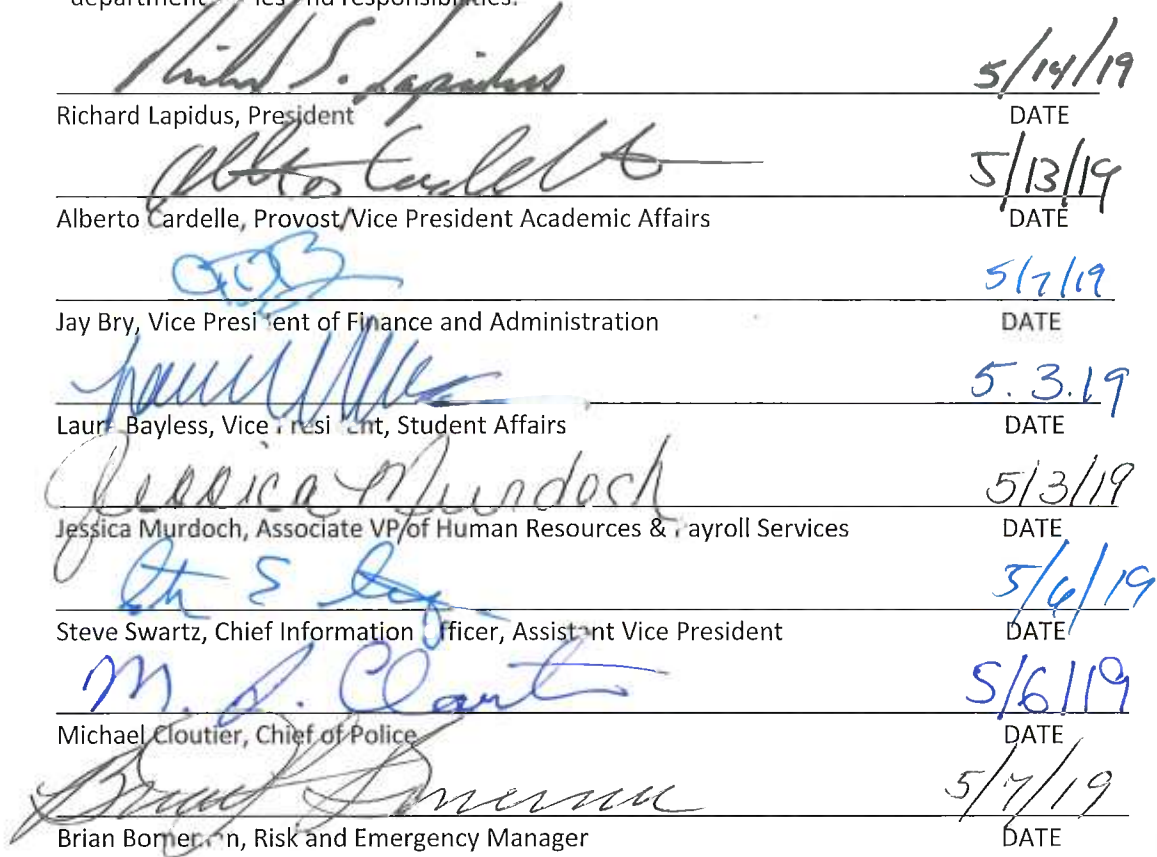 department responsibilities.
Richard S. Lapidus 5/14/19
Richard Lapidus, President DATE
5/13/19
Alberto Cardelle, Provost/Vice President Academic Affairs DATE
5/7/19
Jay Bry, Vice President of Finance and Administration DATE
5.3.19
Bayless, Vice President, Student Affairs DATE
Jessica Murdoch 5/3/19
Jessica Murdoch, Associate VP of Human Resources & Payroll Services DATE
5/6/19
Steve Swartz, Chief Information Officer, Assistant Vice President DATE
5/6/19
Michael Cloutier, Chief of Police DATE
5/7/19
Brian, Risk and Emergency Manager DATE